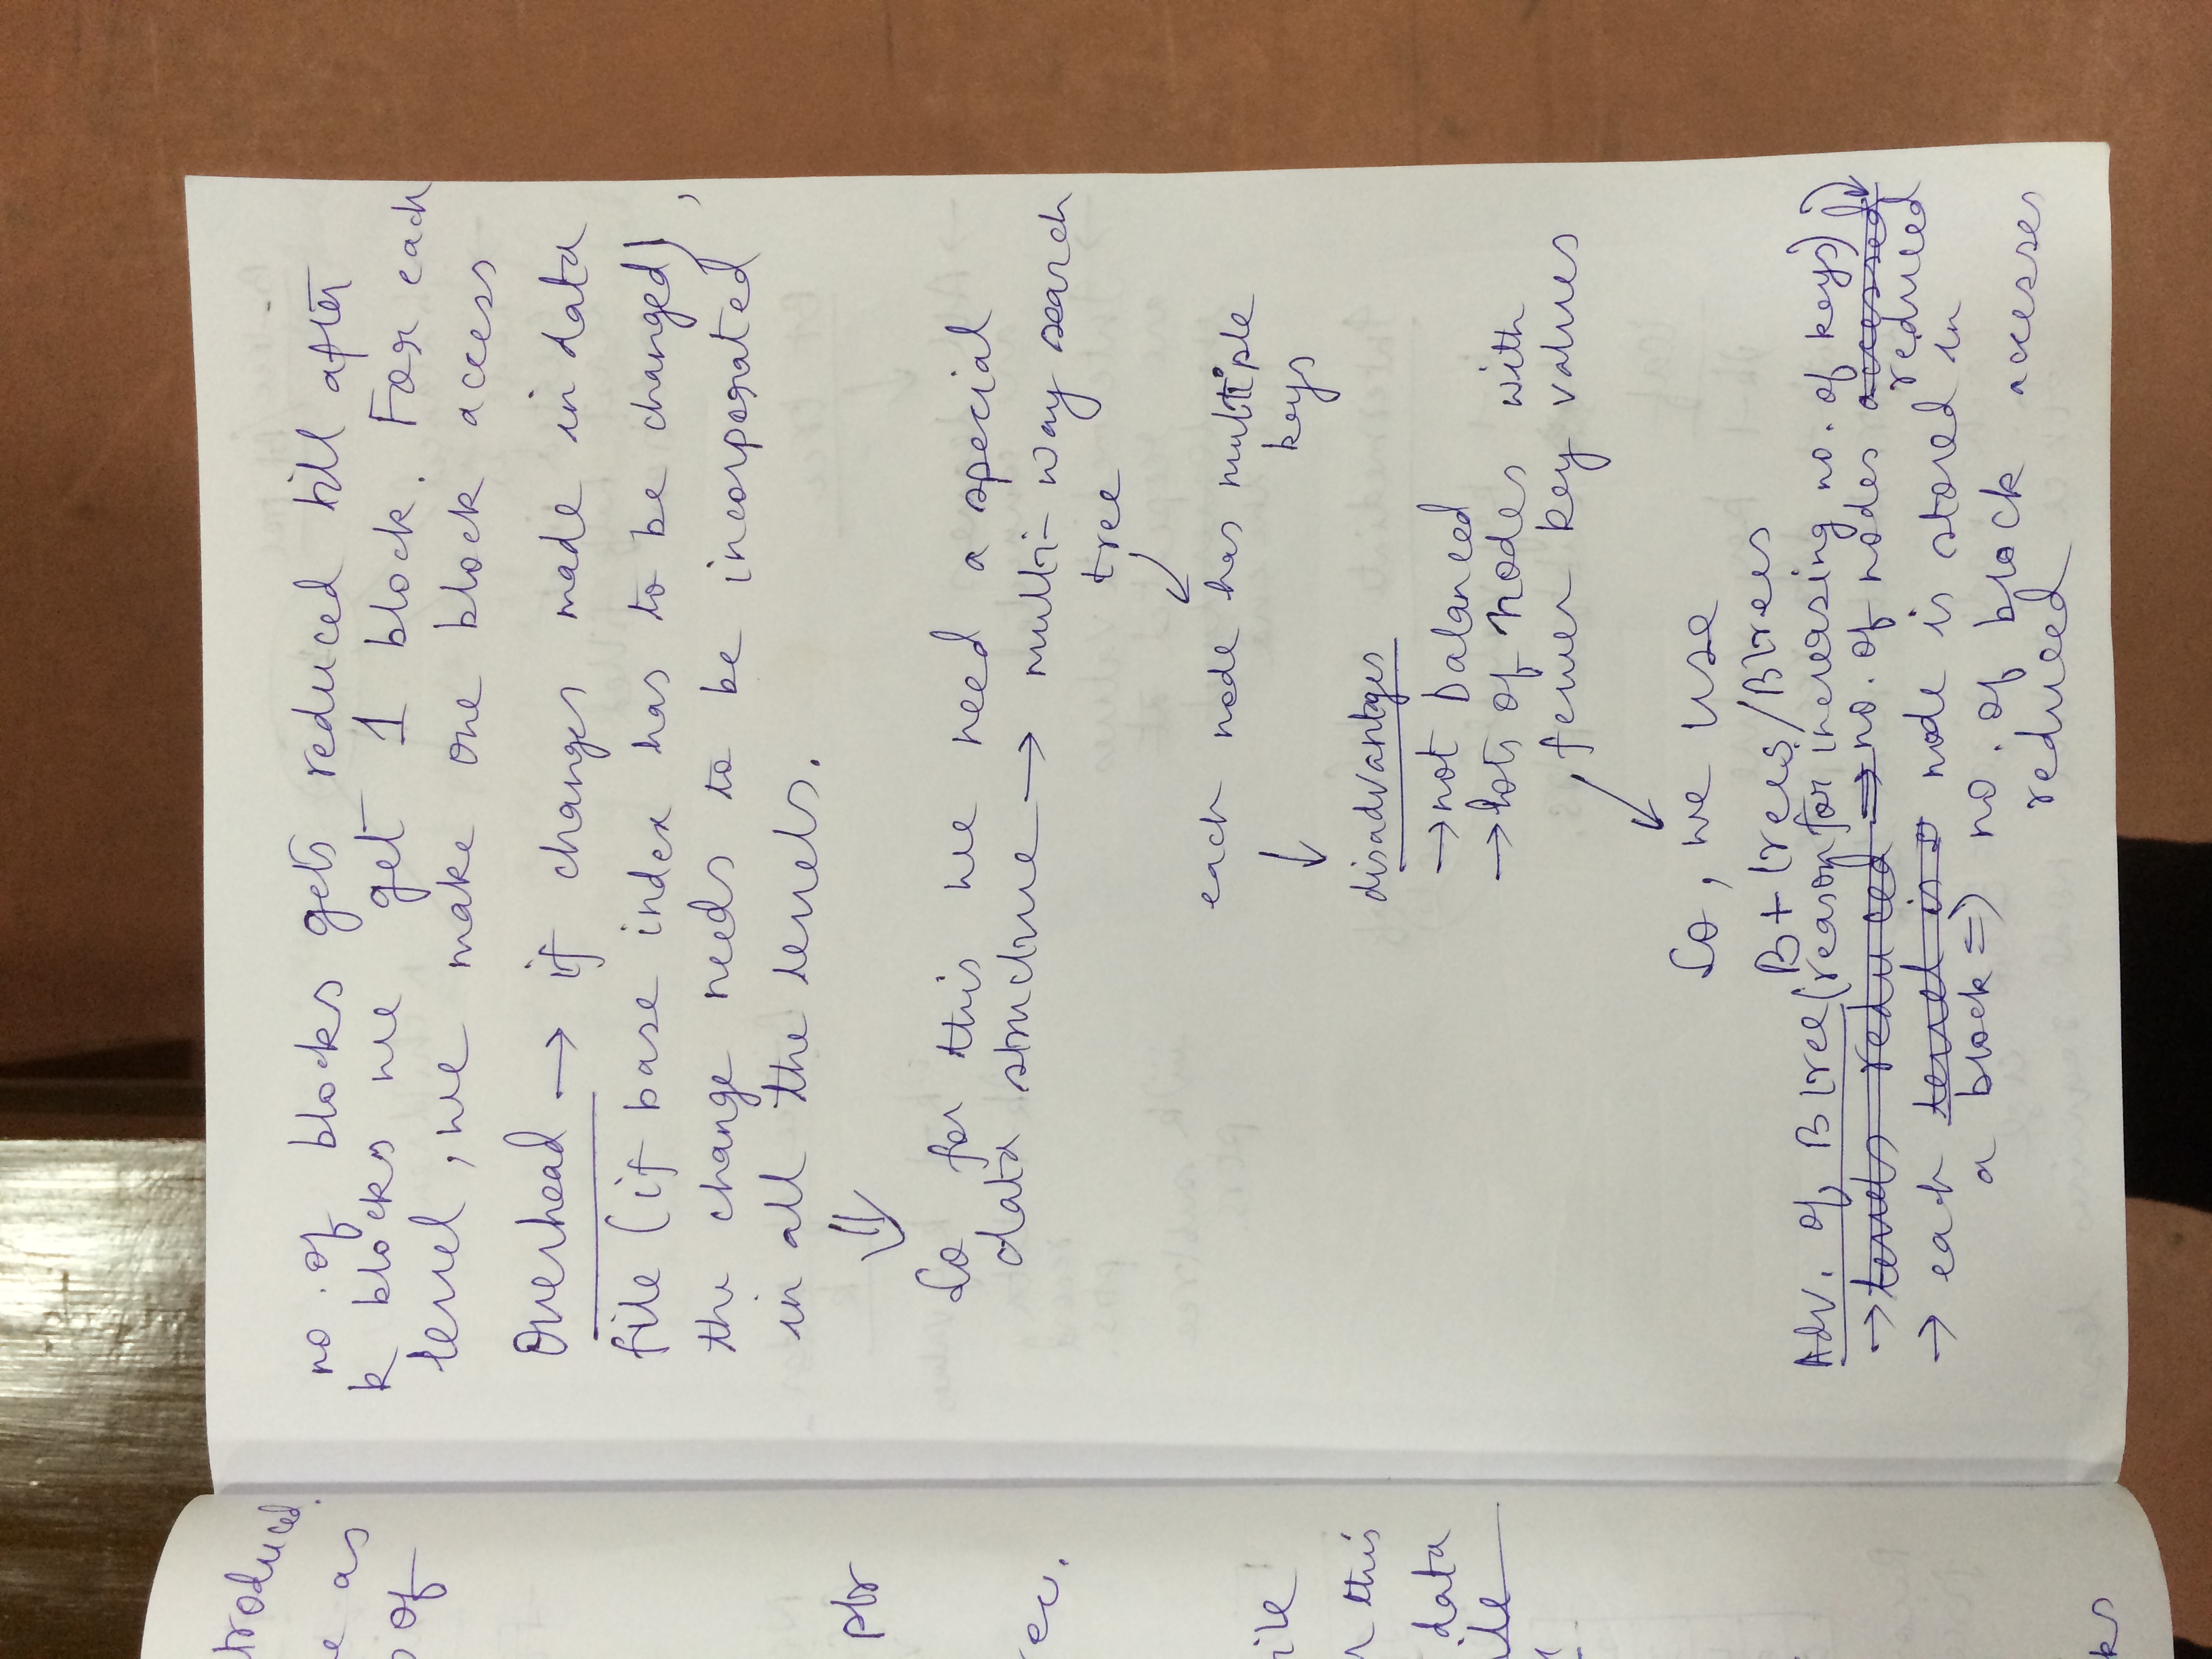 troduced.
e as
of
ptr
rec.
ile
this
data
ile
ks
no. of blocks gets reduced till after
k blocks we get 1 block. For each
level, we make one block access
Overhead → if changes made in data
file (if base index has to be changed),
the change needs to be incorporated
in all the levels.
⇓
So for this we need a special
data structure → multi-way search
tree
↙
each node has multiple
keys
↓
disadvantges
→ not balanced
→ lots of nodes with
fewer key values
↙
So, we use
B+ trees/Btrees
Adv. of Btree (reason for increasing no. of keys)
→ levels reduced ⇒ no. of nodes accessed
reduced
→ each level is node is stored in
a block ⇒ no. of block accesses
reduced